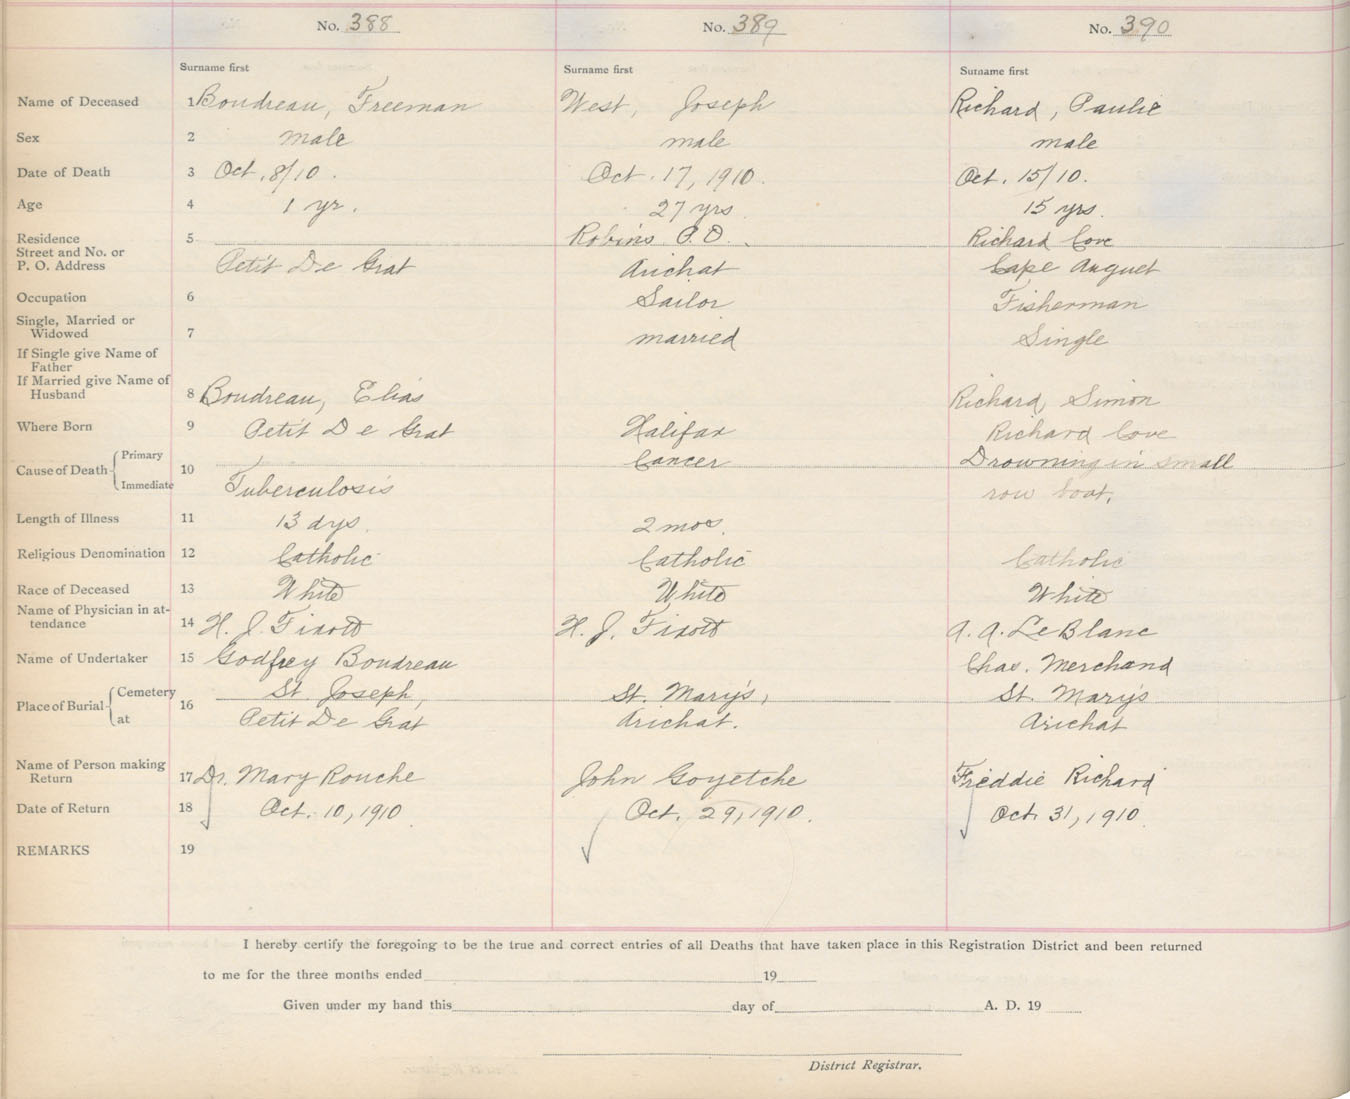 No. 388 No. 389 No. 390
Surname first Surname first Surname first
Name of Deceased 1 Boudreau, Freeman West, Joseph Richard, Paulie
Sex 2 male male male
Date of Death 3 Oct. 8/10. Oct. 17, 1910. Oct. 15/10.
Age 4 1 yr. 27 yrs. 15 yrs.
Residence 5 Robins P.O. Richard Cove
Street and No. or
P. O. Address Petit De Grat Arichat Cape Auguet
Occupation 6 Sailor Fisherman
Single, Married or
Widowed 7 married Single
If Single give Name of
Father
If Married give Name of
Husband 8 Boudreau, Elias Richard, Simon
Where Born 9 Petit De Grat Halifax Richard Cove
Cause of Death Primary 10 Cancer Drowning in small
Immediate Tuberculosis row boat.
Length of Illness 11 13 dys. 2 mos.
Religious Denomination 12 Catholic Catholic Catholic
Race of Deceased 13 White White White
Name of Physician in at-
tendance 14 H. J. Fixott H. J. Fixott A. A. LeBlanc
Name of Undertaker 15 Godfrey Boudreau Chas. Merchand
Place of Burial Cemetery 16 St. Joseph, St. Mary's, St. Mary's
at Petit De Grat Arichat. Arichat
Name of Person making
Return 17 Dr. Mary Rouche John Goyetche Freddie Richard
Date of Return 18 Oct. 10, 1910. Oct. 29, 1910. Oct. 31, 1910
REMARKS 19
I hereby certify the foregoing to be the true and correct entries of all Deaths that have taken place in this Registration District and been returned
to me for the three months ended 19
Given under my hand this day of A. D. 19
District Registrar.